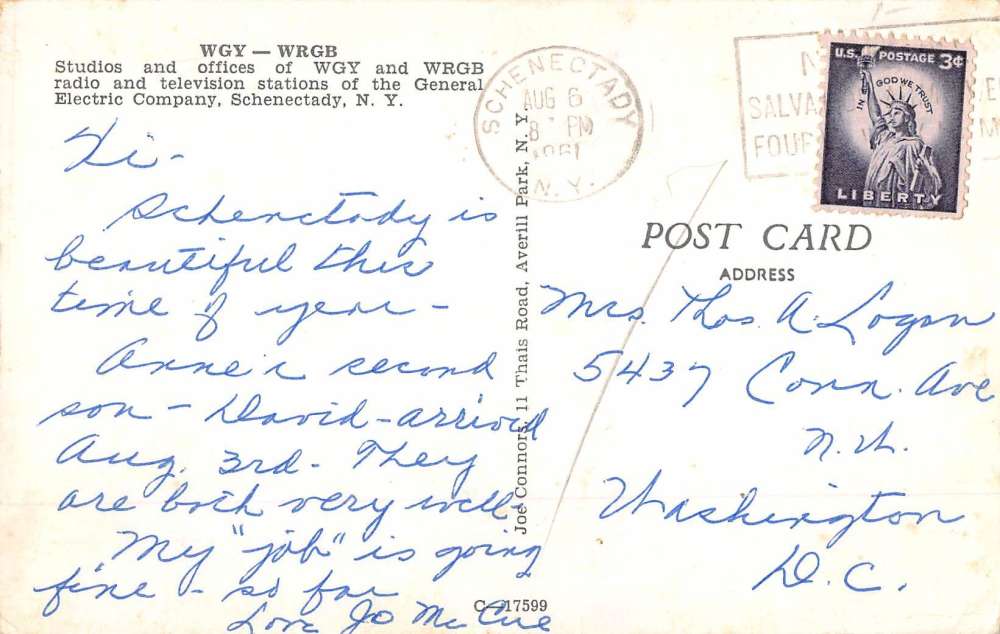 WGY — WRGB
Studios and offices of WGY and WRGB
radio and television stations of the General
Electric Company, Schenectady, N. Y.
Hi -
Schenctady is
beautiful this
time of year -
Anne's second
son - David - arrived
Aug. 3rd. They
are both very well
My "job" is going
fine - so far
Love Jo McCue
C—17599
Joe Connors, 11 Thais Road, Averill Park, N. Y.
SCHENECTADY
AUG 6
8 PM
1961
N. Y.
SALVA
U.S. POSTAGE 3¢
IN GOD WE TRUST
LIBERTY
POST CARD
ADDRESS
Mrs. Thos. A. Logan
5437 Conn. Ave
N.W.
Washington
D.C.